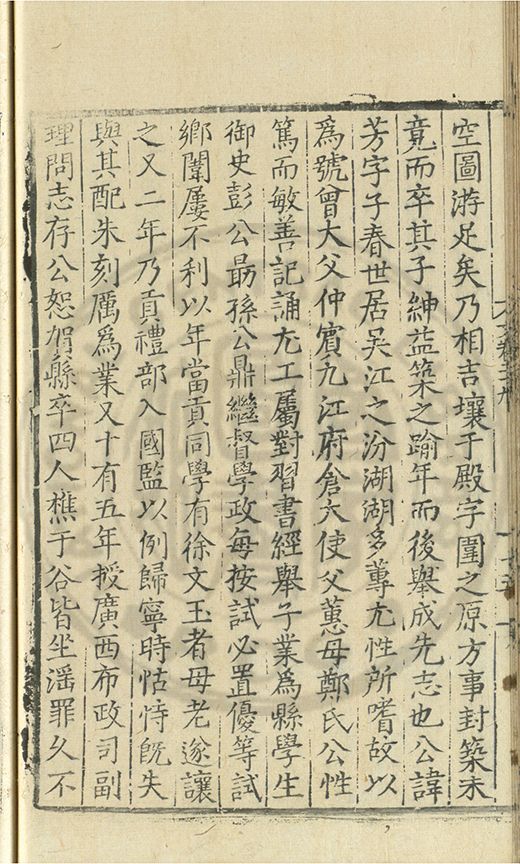 空圖游足矣乃相吉壤于殿字圍之原方事封築未
竟而卒其子紳益築之踰年而後舉成先志也公諱
芳字子春世居吳江之汾湖湖多蓴尤性所嗜故以
為號曾大父仲賓九江府倉大使父蕙母鄭氏公性
篤而敏善記誦尤工屬對習書經舉子業為縣學生
御史彭公勗孫公鼎繼督學政每按試必置優等試
鄉闈屢不利以年當貢同學有徐文玉者母老遂讓
之又二年乃貢禮部入國監以例歸寧時怙恃旣失
與其配朱刻厲為業又十有五年授廣西布政司副
理問志存公恕賀縣卒四人樵于谷皆坐滛罪久不